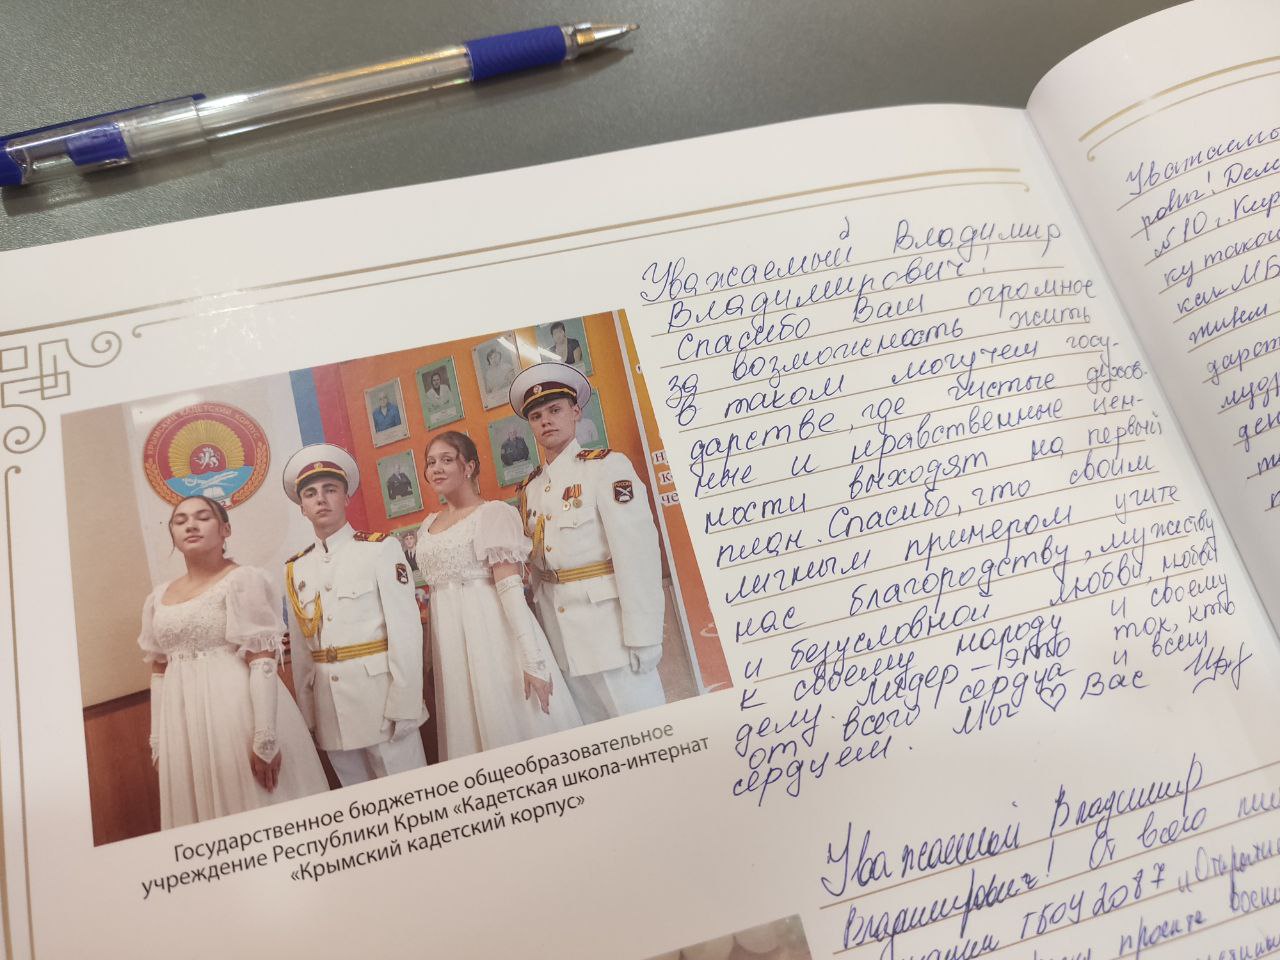 Уважаемый Владимир
Владимирович!
Спасибо Вам огромное
за возможность жить
в таком могучем госу-
дарстве, где чистые духов-
ные и нравственные цен-
ности выходят на первый
план. Спасибо, что своим
личным примером учите
нас благородству, мужеству
и безусловной любви, любви
к своему народу и своему
делу. Лидер - это тот, кто
от всего сердца и всем
сердцем. Мы ♡ Вас
КРЫМСКИЙ КАДЕТСКИЙ КОРПУС
РОССИЯ
Государственное бюджетное общеобразовательное
учреждение Республики Крым «Кадетская школа-интернат
«Крымский кадетский корпус»
Уважаемый Владимир
Владимирович! От всего
ГБОУ 2087 "Открытие
проекте
Уважаемы
ровы!
№10 г. Кир
ку такой
как МБ
живем
дарст